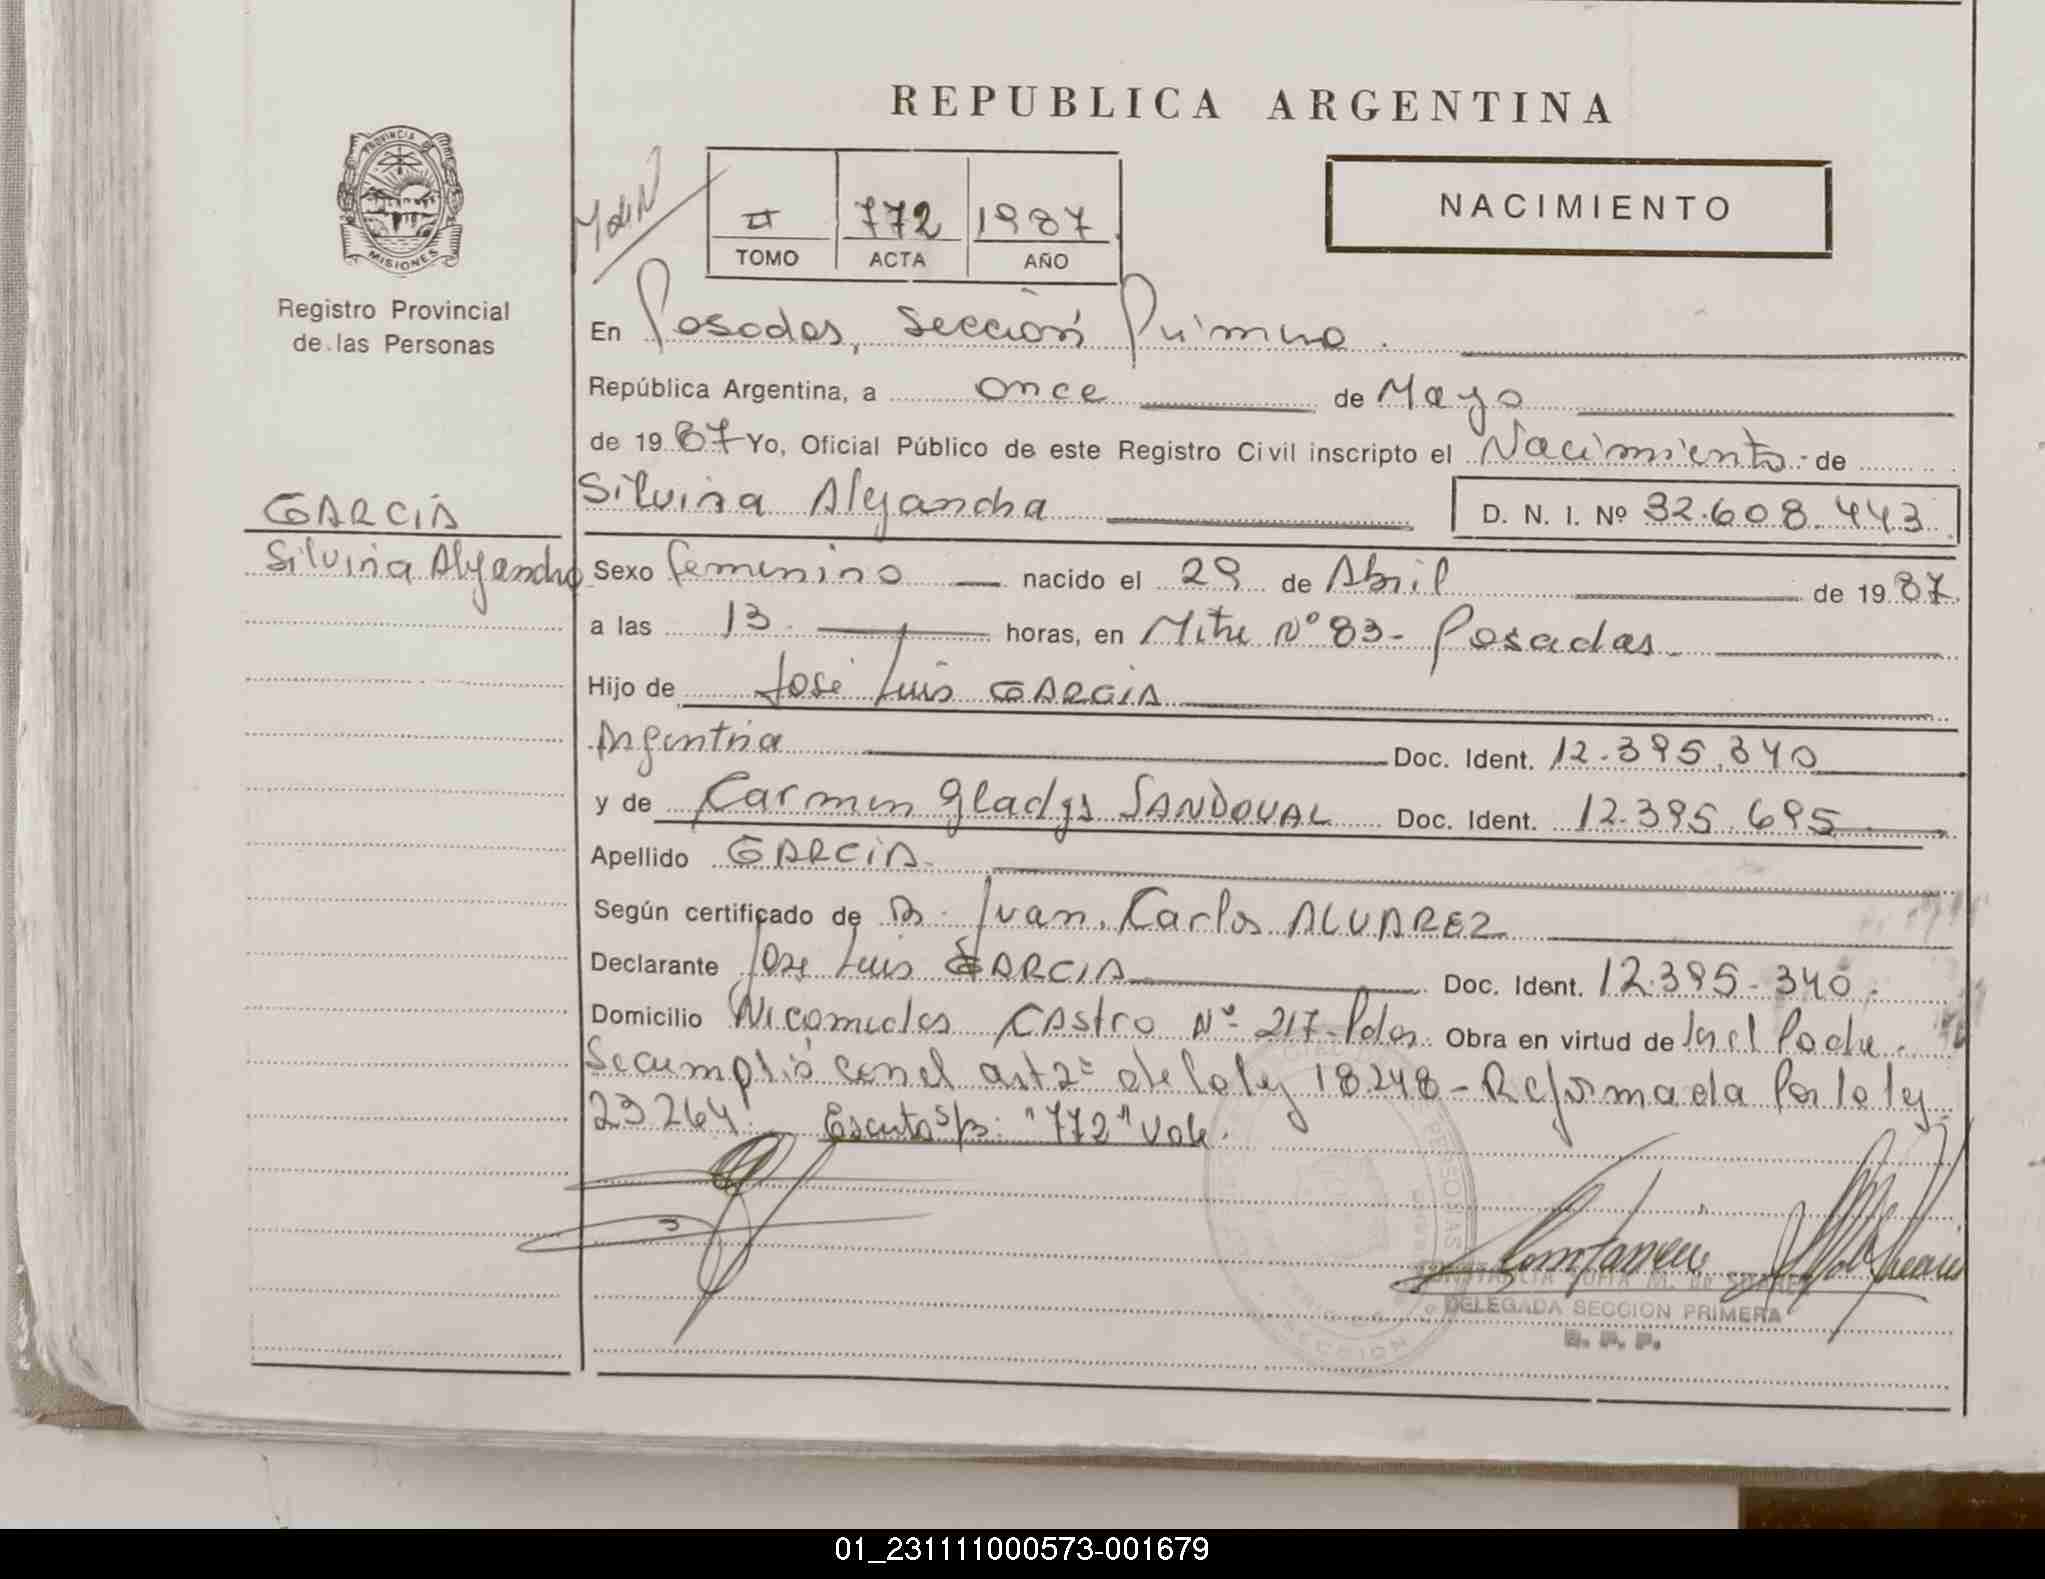 REPUBLICA ARGENTINA
PROVINCIA
MISIONES
Registro Provincial
de las Personas
II 772 1987
TOMO ACTA AÑO
NACIMIENTO
En Posadas, Sección Primera.
República Argentina, a once de Mayo
de 1987 Yo, Oficial Público de este Registro Civil inscripto el Nacimiento de
GARCIA
Silvina Alejandra
Silvina Alejandra D. N. I. Nº 32.608.443
Sexo femenino nacido el 29 de Abril de 1987
a las 13 horas, en Mitre Nº 83- Posadas
Hijo de José Luis GARCIA
Argentina Doc. Ident. 12.395.340
y de Carmen Gladys SANDOVAL Doc. Ident. 12.395.695
Apellido GARCIA
Según certificado de Dr. Juan Carlos ALVAREZ
Declarante Jose Luis GARCIA Doc. Ident. 12.395.340.
Domicilio Nicomedes Castro Nº 217- Pdas Obra en virtud de ser el Padre.
Se cumplió con el art 2º de la ley 18248 - Reformada Por la ley
23264. Escrito s/b: "772" Vale.
DELEGADA SECCION PRIMERA
R. P. P.
01_231111000573-001679